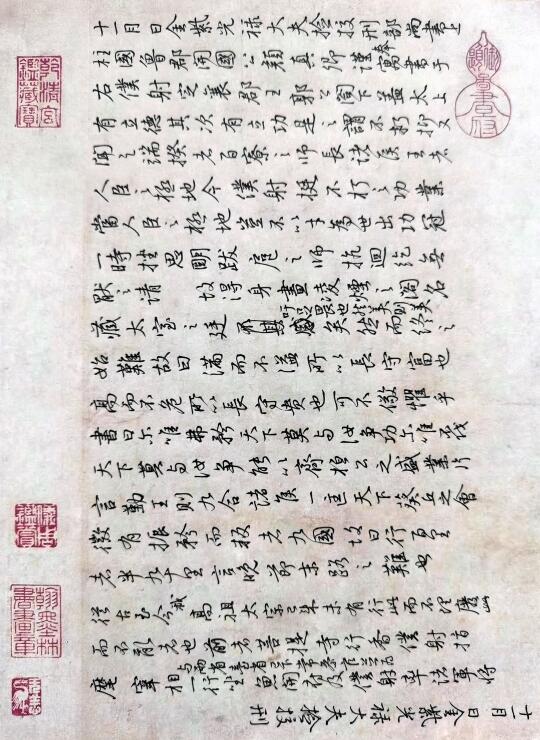 十一月日金紫光祿大夫撿挍刑部尚書上
柱國魯郡開國公顏真卿謹奉寓書于
右僕射定襄郡王郭公閣下蓋太上
有立德其次有立功是之謂不朽抑又
聞之端揆者百寮之師長諸侯王者
人臣之極地今僕射挺不朽之功業
當人臣之極地豈不以才為世出功冠
一時挫思明跋扈之師抗迴紇無
厭之請故得身畫凌煙之閣名
藏太室之廷吁足畏也然美則美矣然而終之
始難故曰滿而不溢所以長守富也
高而不危所以長守貴也可不儆懼乎
書曰爾唯弗矜天下莫与汝爭功爾唯不伐
天下莫与汝爭能以齊桓公之盛業片
言勤王則九合諸侯一匡天下葵丘之會
微有振矜而叛者九國故曰行百里
者半九十里言晚節末路之難也
從古至今高祖太宗已來未有行此而不理廢此
而不亂者也前者菩提寺行香僕射指
麾宰相与兩省臺省已下常參官並為一行坐魚開府及僕射率諸軍將
十一月日金紫光祿大夫撿挍刑
乾清宮鑒藏寶
翰墨林書畫章